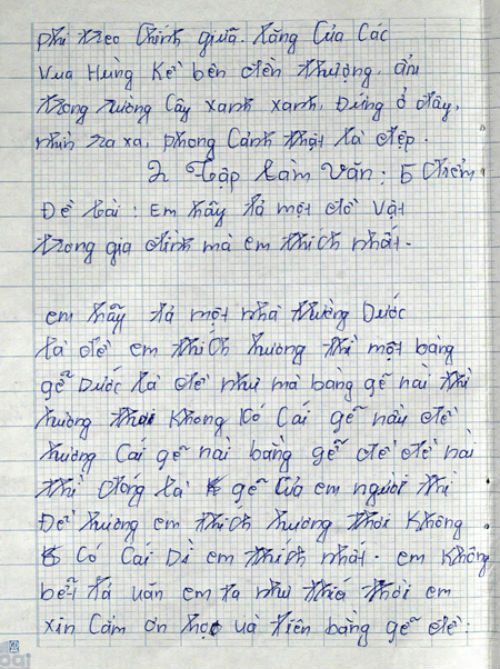 phi treo Chính giữa. Lăng Của Các
Vua Hùng Kề bên đền thượng, ẩn
trong rừng Cây xanh xanh. Đứng ở đây,
nhìn ra xa, phong Cảnh thật là đẹp.
2 Tập Làm Văn: 5 điểm
Đề bài: Em hãy tả một đồ vật
trong gia đình mà em thích nhất.
em hẫy tả một nhà thường Dước
là để em thích hương thì một bàng
gễ Dước là để như mà bàng gễ nài thì
hường thơi không Có Cái gễ nầu để
hương Cái gễ nài bàng gễ để để nài
thì đóng là gễ Của em người thì
Để hương em thích hương thơi không
Có Cái Dì em thích nhất. em không
bết tả văn em tả như thiá thơi em
xin Cảm ơn học và tiên bàng gễ để: